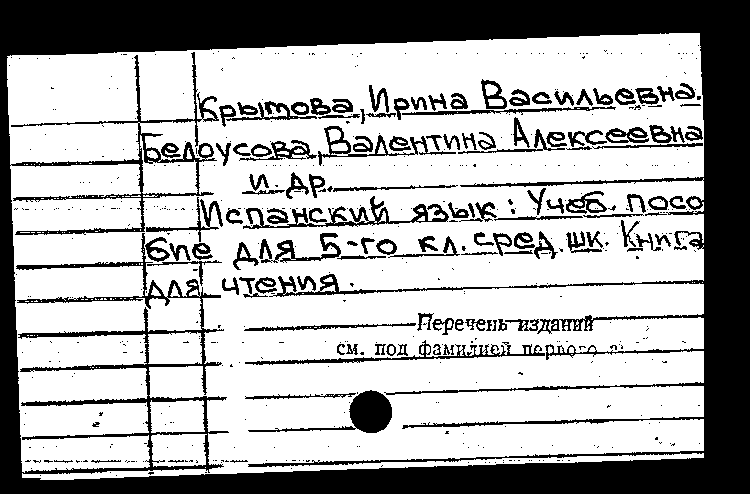 Крымова, Ирина Васильевна.
Белоусова, Валентина Алексеевна
и др.
Испанский язык: Учеб. посо
бие для 5-го кл. сред. шк. Книга
для чтения.
Перечень изданий
см. под фамилией первого